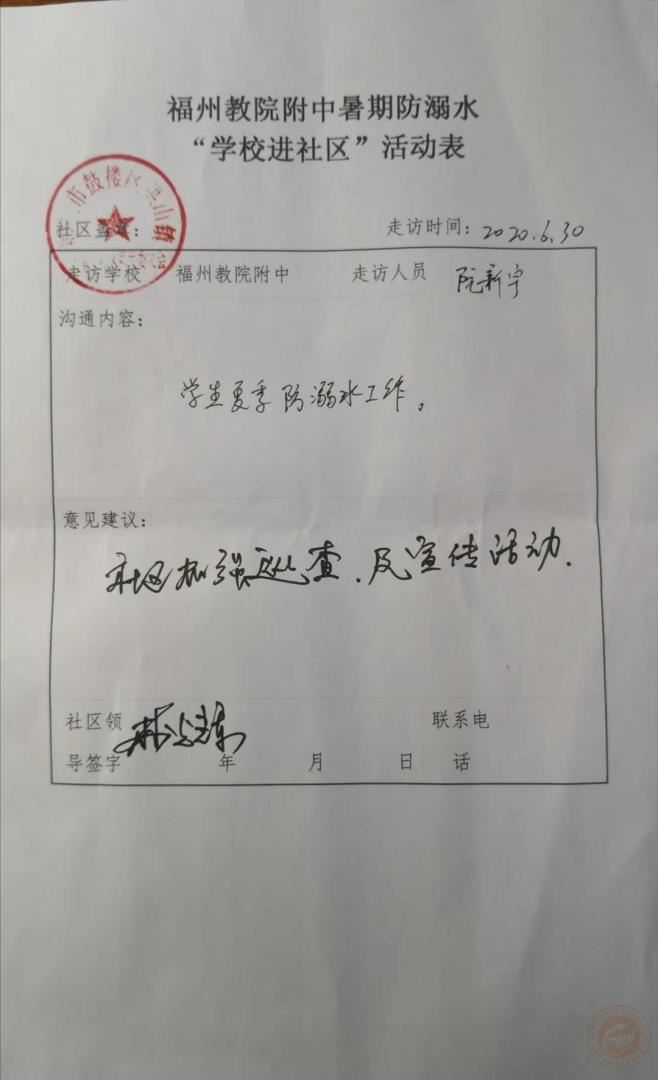 福州教院附中暑期防溺水
“学校进社区”活动表
市鼓楼区 山镇
社区盖章： 走访时间：2020.6.30
走访学校 福州教院附中 走访人员 阮新宇
沟通内容：
学生夏季防溺水工作。
意见建议：
社区加强巡查、及宣传活动.
社区领 联系电
导签字 年 月 日 话